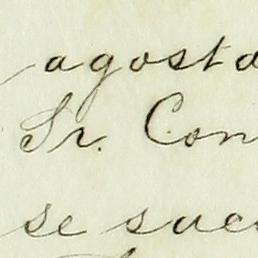 agosto
Sr. Con
se suce